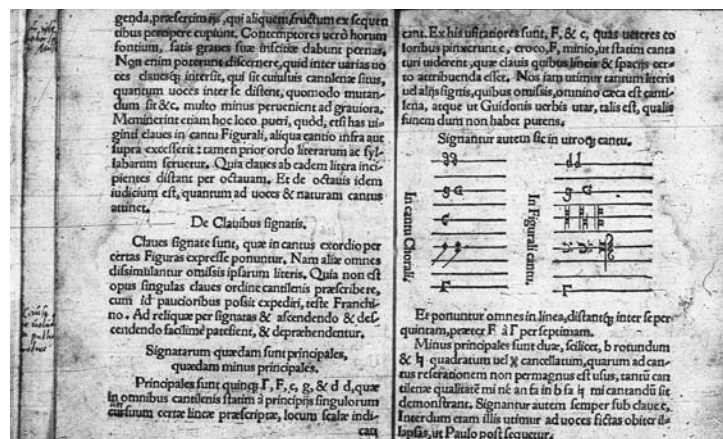 genda, præsertim ijs, qui aliquem fructum ex sequen
tibus percipere cupiunt. Contemptores uerò horum
fontium, satis graues suæ inscitiæ dabunt pœnas.
Non enim poterunt discernere, quid inter uarias uo
ces clauesq; intersit, qui sit cuiusuis cantilenæ situs,
quantum uoces inter se distent, quomodo mutan-
dum sit &c. multo minus peruenient ad grauiora.
Meminerint etiam hoc loco pueri, quòd, etsi has ui-
ginti claues in cantu Figurali, aliqua cantio infra aut
supra excesserit: tamen prior ordo literarum ac syl-
labarum seruetur. Quia claues ab eadem litera inci-
pientes distant per octauam. Et de octauis idem
iudicium est, quantum ad uoces & naturam cantus
attinet.
De Clauibus signatis.
Claues signatæ sunt, quæ in cantus exordio per
certas Figuras expressæ ponuntur. Nam aliæ omnes
dissimulantur omissis ipsarum literis. Quia non est
opus singulas claues ordine cantilenis præscribere,
cum id paucioribus possit expediri, teste Franchi-
no. Ad reliquæ per signatas & ascendendo & des-
cendendo facilimè patefient, & depræhendentur.
Signatarum quædam sunt principales,
quædam minus principales.
Principales sunt quinq; Γ, F, c, g, & d d, quæ
in omnibus cantilenis statim à principijs singulorum
cursuum certæ lineæ præscriptæ, locum scalæ indi-
cant
cant. Ex his usitatiores sunt, F, & c, quas ueteres co
loribus pinxerunt c, croco, F, minio, ut statim canta
turi uiderent, quæ clauis quibus lineis & spacijs cer-
to attribuenda esset. Nos iam utimur tantum literis
ud alijs signis, quibus omissis, omnino cæca est canti-
lena, atque ut Guidonis uerbis utar, talis est, qualis
funem dum non habet puteus.
Signantur autem sic in utroq; cantu.
In cantu Chorali.
dd
g
c
Γ
In Figurali cantu.
dd
g
Γ
Et ponuntur omnes in linea, distantq; inter se per
quintam, præter F à Γ per septimam.
Minus principales sunt duæ, scilicet, b rotundum
& ♮ quadratum uel cancellatum, quarum ad can-
tus reserationem non permagnus est usus, tantū can
tilenæ qualitatē mi nè an fa in b fa ♮ mi cantandū sit
demonstrant. Signantur autem semper sub claue c,
Interdum etam illis utimur ad uoces fictas obiter il-
lapsas, ut Paulo post sequetur.